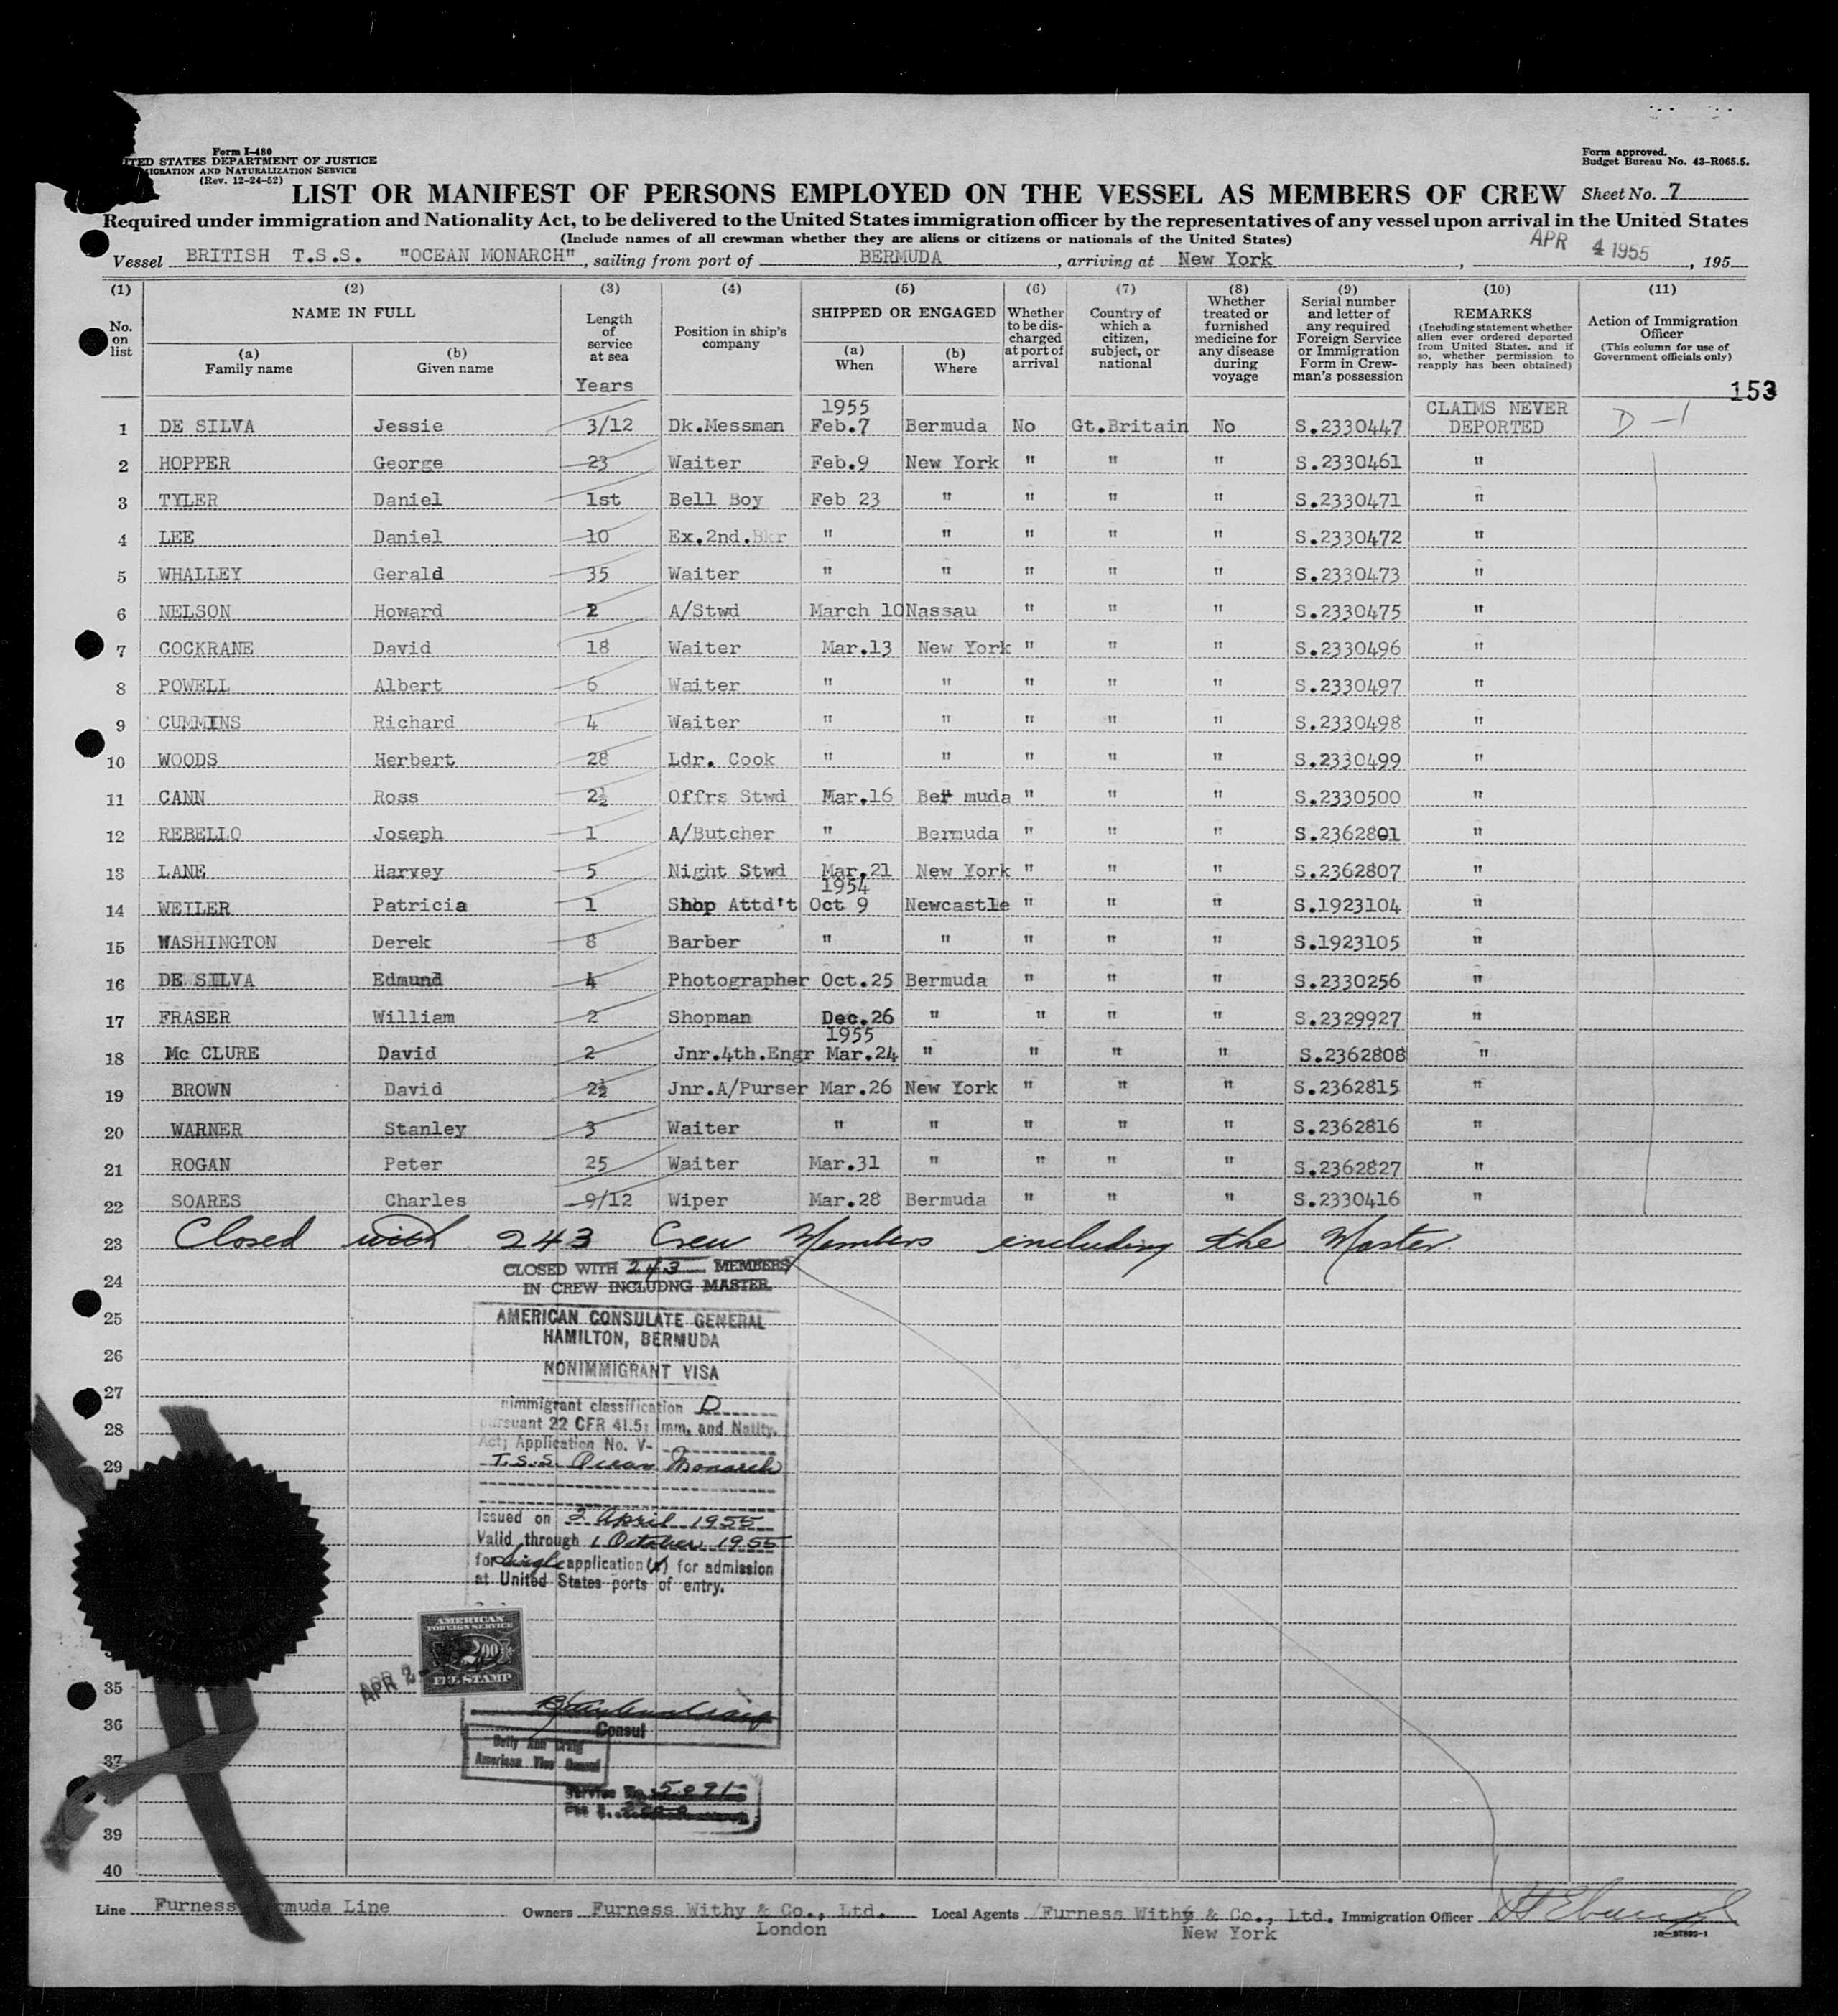 Form I-480
ITED STATES DEPARTMENT OF JUSTICE
IGRATION AND NATURALIZATION SERVICE
(Rev. 12-24-52)
Form approved.
Budget Bureau No. 43-R065.5.
LIST OR MANIFEST OF PERSONS EMPLOYED ON THE VESSEL AS MEMBERS OF CREW Sheet No. 7
Required under immigration and Nationality Act, to be delivered to the United States immigration officer by the representatives of any vessel upon arrival in the United States
(Include names of all crewman whether they are aliens or citizens or nationals of the United States)
Vessel BRITISH T.S.S. "OCEAN MONARCH", sailing from port of BERMUDA, arriving at New York, APR 4 1955, 195
(1) (2) (3) (4) (5) (6) (7) (8) (9) (10) (11)
No. on list
NAME IN FULL
(a) Family name
(b) Given name
Length of service at sea
Years
Position in ship's company
SHIPPED OR ENGAGED
(a) When
(b) Where
Whether to be discharged at port of arrival
Country of which a citizen, subject, or national
Whether treated or furnished medicine for any disease during voyage
Serial number and letter of any required Foreign Service or Immigration Form in Crewman's possession
REMARKS
(Including statement whether alien ever ordered deported from United States, and if so, whether permission to reapply has been obtained)
Action of Immigration Officer
(This column for use of Government officials only)
153
1955 CLAIMS NEVER
1 DE SILVA Jessie 3/12 Dk.Messman Feb.7 Bermuda No Gt.Britain No S.2330447 DEPORTED D-1
2 HOPPER George 23 Waiter Feb.9 New York " " " S.2330461 "
3 TYLER Daniel 1st Bell Boy Feb 23 " " " " S.2330471 "
4 LEE Daniel 10 Ex.2nd.Bkr " " " " " S.2330472 "
5 WHALLEY Gerald 35 Waiter " " " " " S.2330473 "
6 NELSON Howard 2 A/Stwd March 10 Nassau " " " S.2330475 "
7 COCKRANE David 18 Waiter Mar.13 New York " " " S.2330496 "
8 POWELL Albert 6 Waiter " " " " " S.2330497 "
9 CUMMINS Richard 4 Waiter " " " " " S.2330498 "
10 WOODS Herbert 28 Ldr. Cook " " " " " S.2330499 "
11 CANN Ross 2½ Offrs Stwd Mar.16 Ber muda " " " S.2330500 "
12 REBELLO Joseph 1 A/Butcher " Bermuda " " " S.2362801 "
13 LANE Harvey 5 Night Stwd Mar.21 New York " " " S.2362807 "
1954
14 WEILER Patricia 1 Shop Attd't Oct 9 Newcastle " " " S.1923104 "
15 WASHINGTON Derek 8 Barber " " " " " S.1923105 "
16 DE SILVA Edmund 4 Photographer Oct.25 Bermuda " " " S.2330256 "
17 FRASER William 2 Shopman Dec.26 " " " " S.2329927 "
1955
18 Mc CLURE David 2 Jnr.4th.Engr Mar.24 " " " " S.2362808 "
19 BROWN David 2½ Jnr.A/Purser Mar.26 New York " " " S.2362815 "
20 WARNER Stanley 3 Waiter " " " " " S.2362816 "
21 ROGAN Peter 25 Waiter Mar.31 " " " " S.2362827 "
22 SOARES Charles 9/12 Wiper Mar.28 Bermuda " " " S.2330416 "
23 Closed with 243 Crew Members including the Master.
CLOSED WITH 243 MEMBERS
24
IN CREW INCLUDNG MASTER
25 AMERICAN CONSULATE GENERAL
HAMILTON, BERMUDA
26
NONIMMIGRANT VISA
27
nimmigrant classification D
28 ursuant 22 CFR 41.5; Imm. and Natlty.
Act; Application No. V-
29 T.S.S. Ocean Monarch
Issued on 2 April 1955
Valid through 1 October 1955
for single application(s) for admission
at United States ports of entry.
AMERICAN
FOREIGN SERVICE
2.00
FEE STAMP
APR 2-
35
36
Consul
37 Betty Ann Craig
American Vice Consul
Service No. 5091
39
40
Line Furness muda Line Owners Furness Withy & Co., Ltd. Local Agents Furness Withy & Co., Ltd. Immigration Officer
London New York